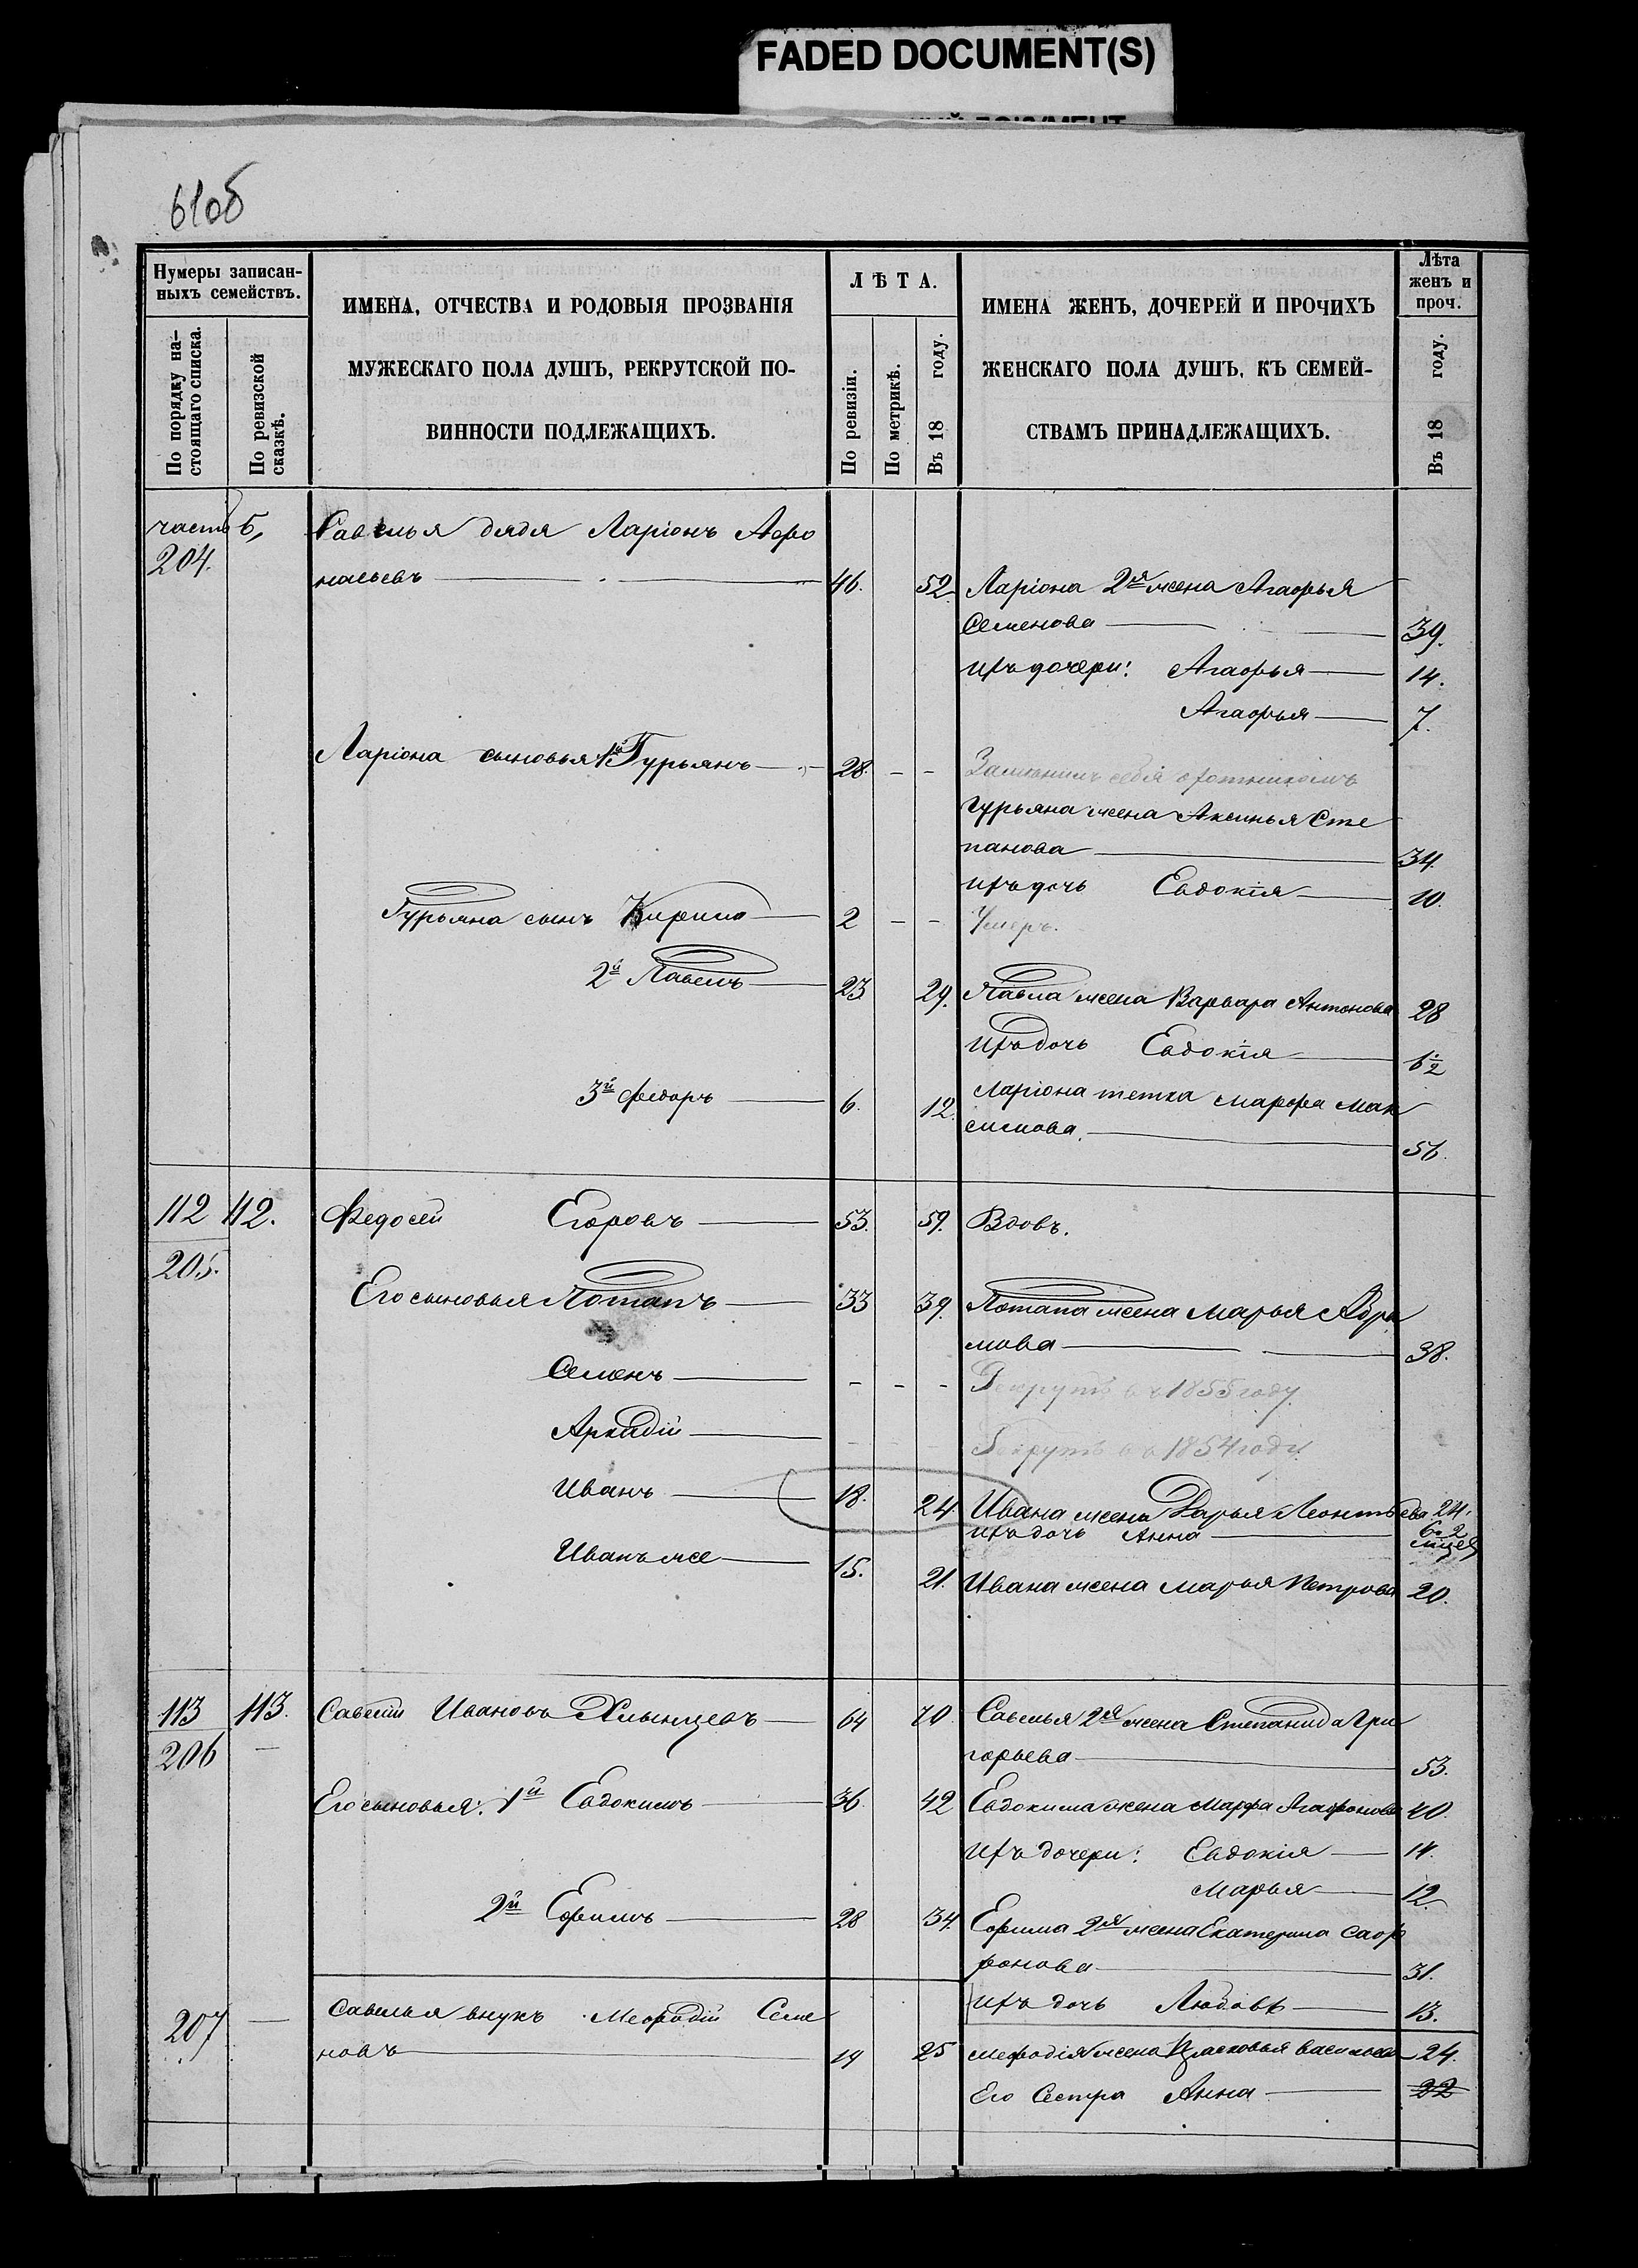 FADED DOCUMENT(S)
61об
Нумеры записан-
ныхъ семействъ.
По порядку на-
стоящаго списка.
По ревизской
сказкѣ.
ИМЕНА, ОТЧЕСТВА И РОДОВЫЯ ПРОЗВАНІЯ
МУЖЕСКАГО ПОЛА ДУШЪ, РЕКРУТСКОЙ ПО-
ВИННОСТИ ПОДЛЕЖАЩИХЪ.
ЛѢТА.
По ревизіи.
По метрикѣ.
Въ 18 году.
ИМЕНА ЖЕНЪ, ДОЧЕРЕЙ И ПРОЧИХЪ
ЖЕНСКАГО ПОЛА ДУШЪ, КЪ СЕМЕЙ-
СТВАМЪ ПРИНАДЛЕЖАЩИХЪ.
Лѣта
женъ и
проч.
Въ 18 году.
часть Б,
204.
Савелья дядя Ларіонъ Афо
насьевъ 46. 52
Ларіона 2я жена Агафья
Семенова 39.
ихъ дочери: Агафья 14.
Агафья 7.
Ларіона сыновья 1й Гурьянъ 28. - -
себя охотникомъ
Гурьяна жена Аксинья Сте
панова 34
ихъ дочь Евдокія 10.
Гурьяна сынъ Кирило 2 - - Умеръ.
2й Павелъ 23 29. Павла жена Варвара Антонова 28
ихъ дочь Евдокія
3й Федоръ 6. 12. Ларіона тетка Марфа Мак
симова. 56.
112 112. Федосей Егоровъ 53. 59. Вдовъ.
205.
Его сыновья Потапъ 33 39. Потапа жена Марья Абра
мова 38.
Семенъ - - - Рекрутъ въ 1855 году.
Аркадій - - - Рекрутъ въ 1854 году.
Иванъ 18. 24. Ивана жена Дарья Леонтьева 24.
ихъ дочь Анна
Иванъ же 15. 21. Ивана жена Марья Петрова 20.
113 113. Савелій Ивановъ Хлынцевъ 64 70. Савелья 2я жена Степанида Гри
206 -
горьева 53.
Его сыновья: 1й Евдокимъ 36. 42 Евдокима жена Марфа Агафонова 40.
ихъ дочери: Евдокія 14.
Марья 12.
2й Ефимъ 28 34. Ефима 2я жена Екатерина Саф
ронова 31.
ихъ дочь Любовь 13.
207 - Савелья внукъ Мефодій Семе
новъ 19 25 Мефодія жена Прасковья Васильева 24.
Его Сестра Анна 22